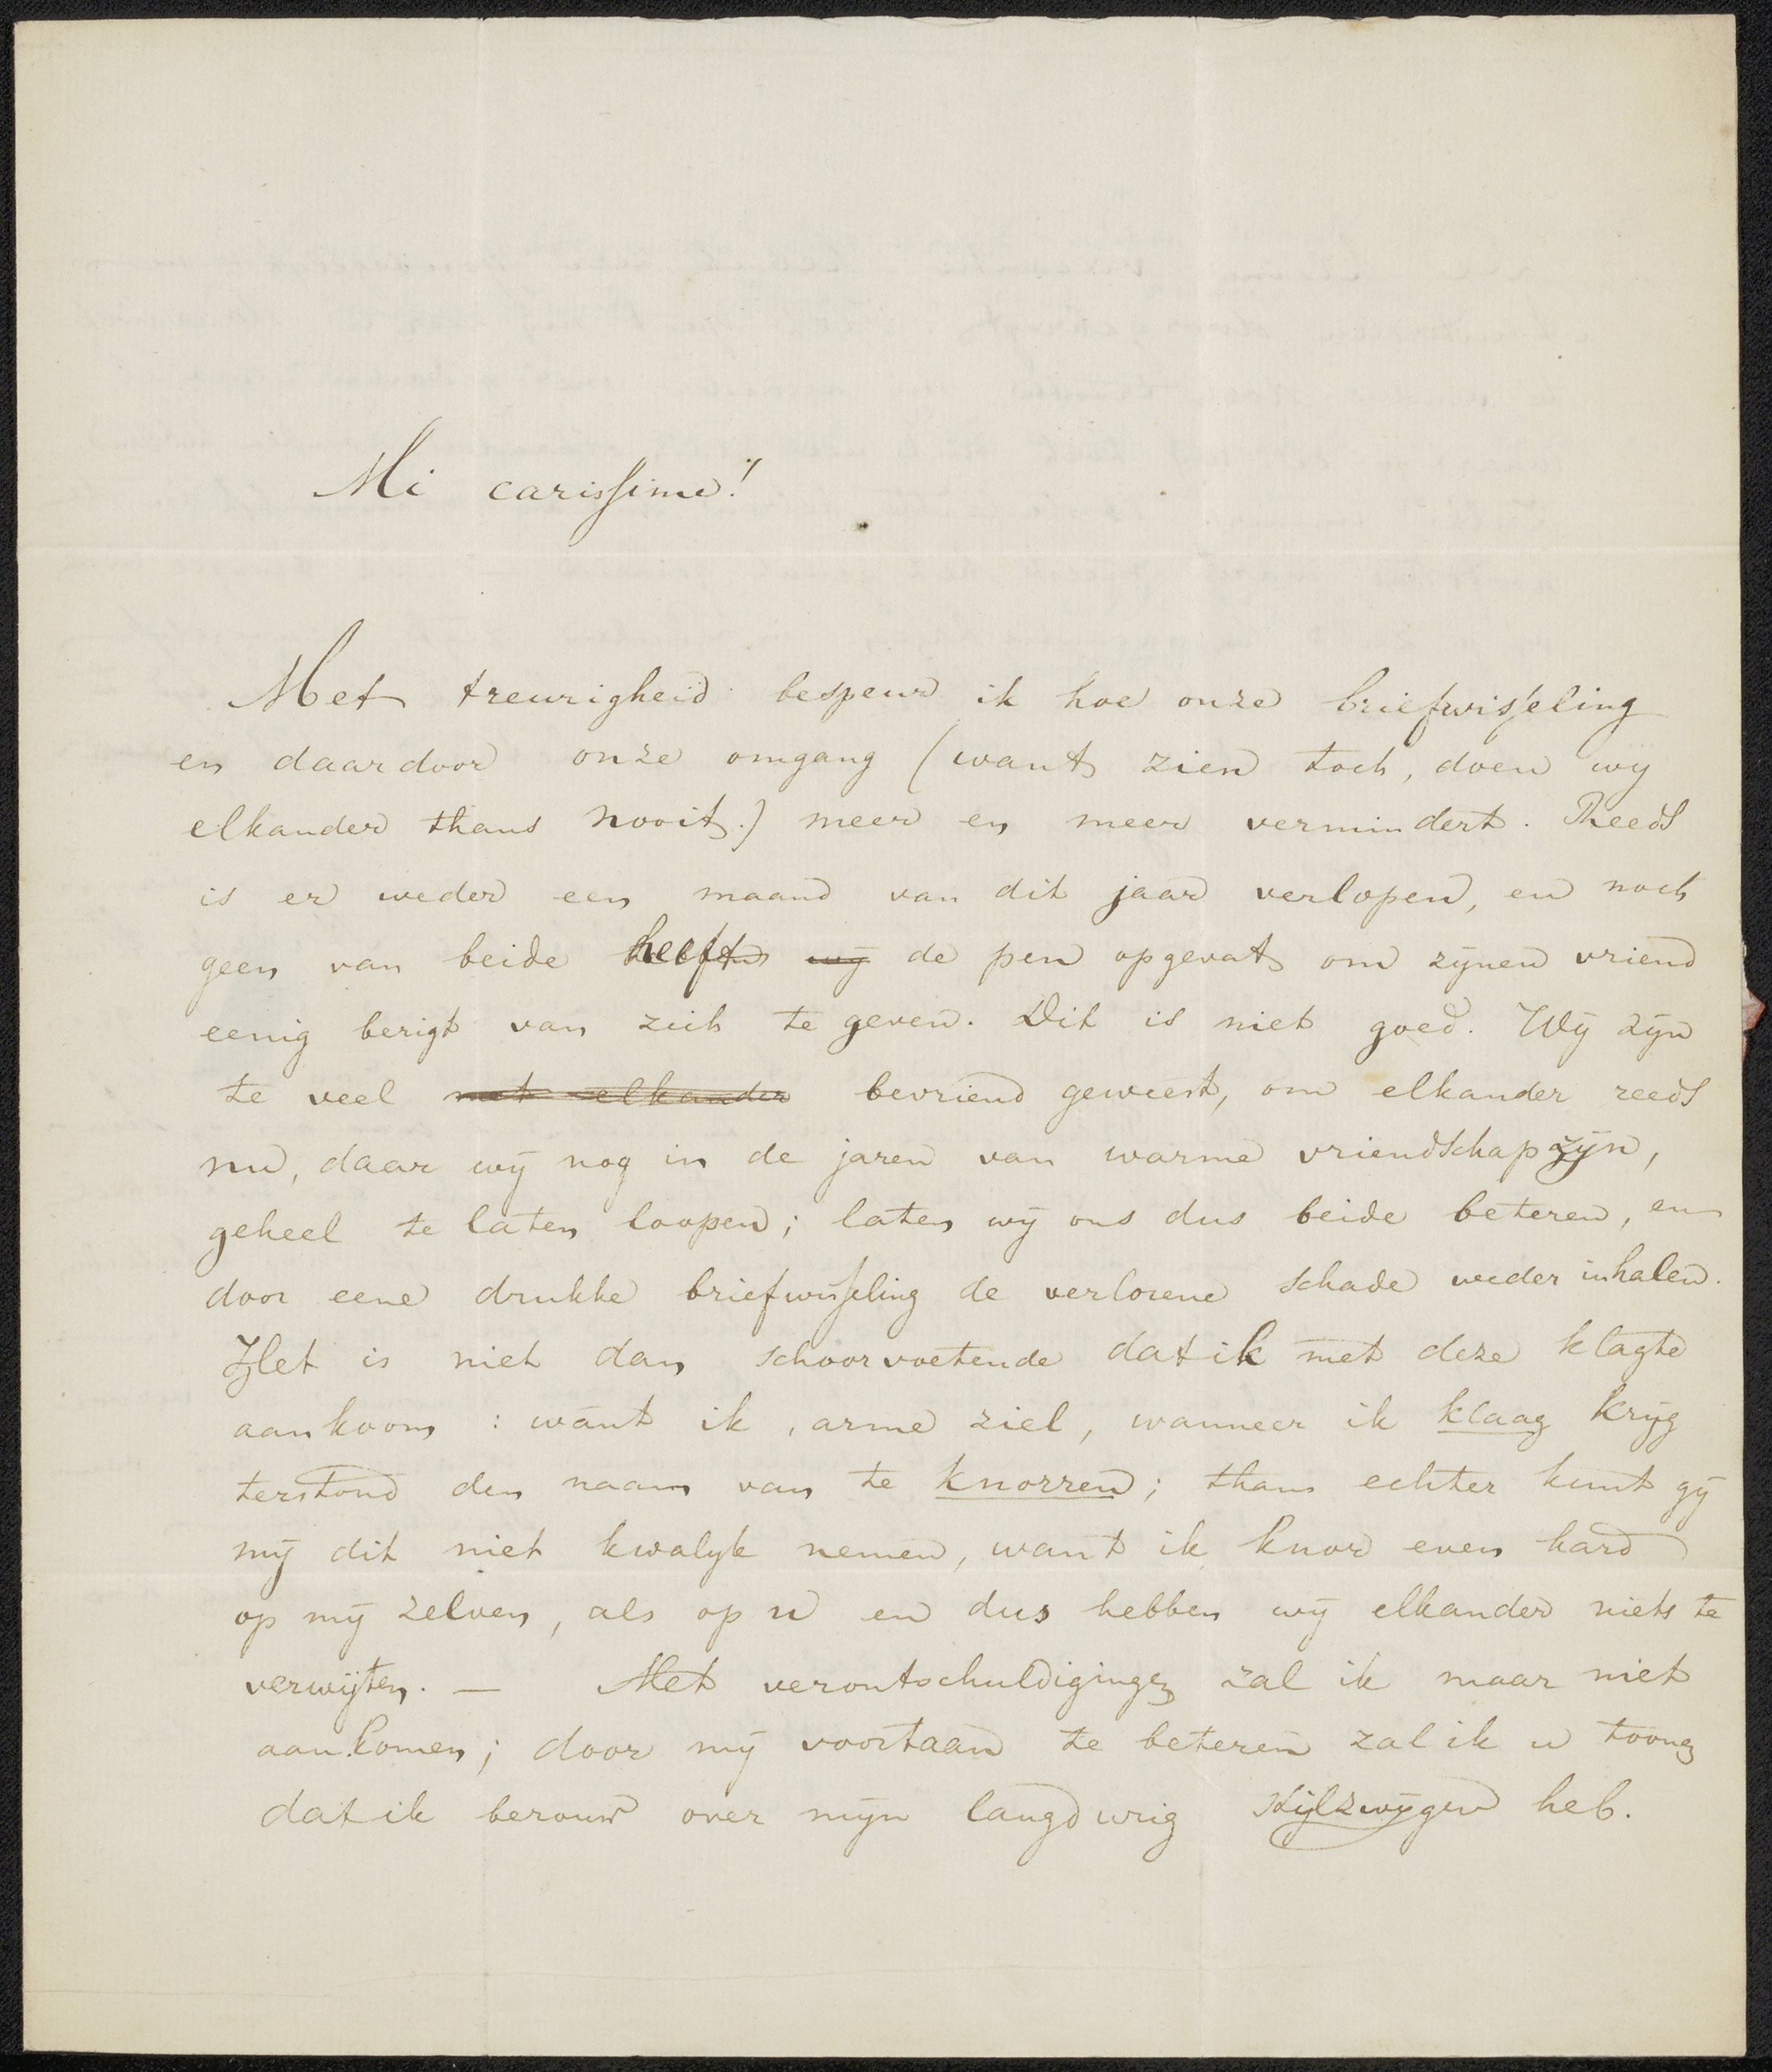 Mi carissime!
Met treurigheid bespeur ik hoe onze briefwisseling
en daardoor onze omgang (want zien toch, doen wij
elkander thans nooit.) meer en meer vermindert. Reeds
is er weder een maand van dit jaar verlopen, en noch
geen van beide heeft wij de pen opgevat om zijnen vriend
eenig berigt van zich te geven. Dit is niet goed. Wij zijn
te veel met elkander bevriend geweest, om elkander reeds
nu, daar wij nog in de jaren van warme vriendschap zijn,
geheel te laten loopen; laten wij ons dus beide beteren, en
door eene drukke briefwisseling de verlorene schade weder inhalen.
Het is niet dan schoorvoetende dat ik met deze klagte
aankoom: want ik, arme ziel, wanneer ik klaag krijg
terstond den naam van te knorren; thans echter kunt gij
mij dit niet kwalijk nemen, want ik knor even hard
op mij zelven, als op u en dus hebben wij elkander niets te
verwijten. — Met verontschuldigingen zal ik maar niet
aankomen; door mij voortaan te beteren zal ik u toonen
dat ik berouw over mijn langdurig stijlzwijgen heb.